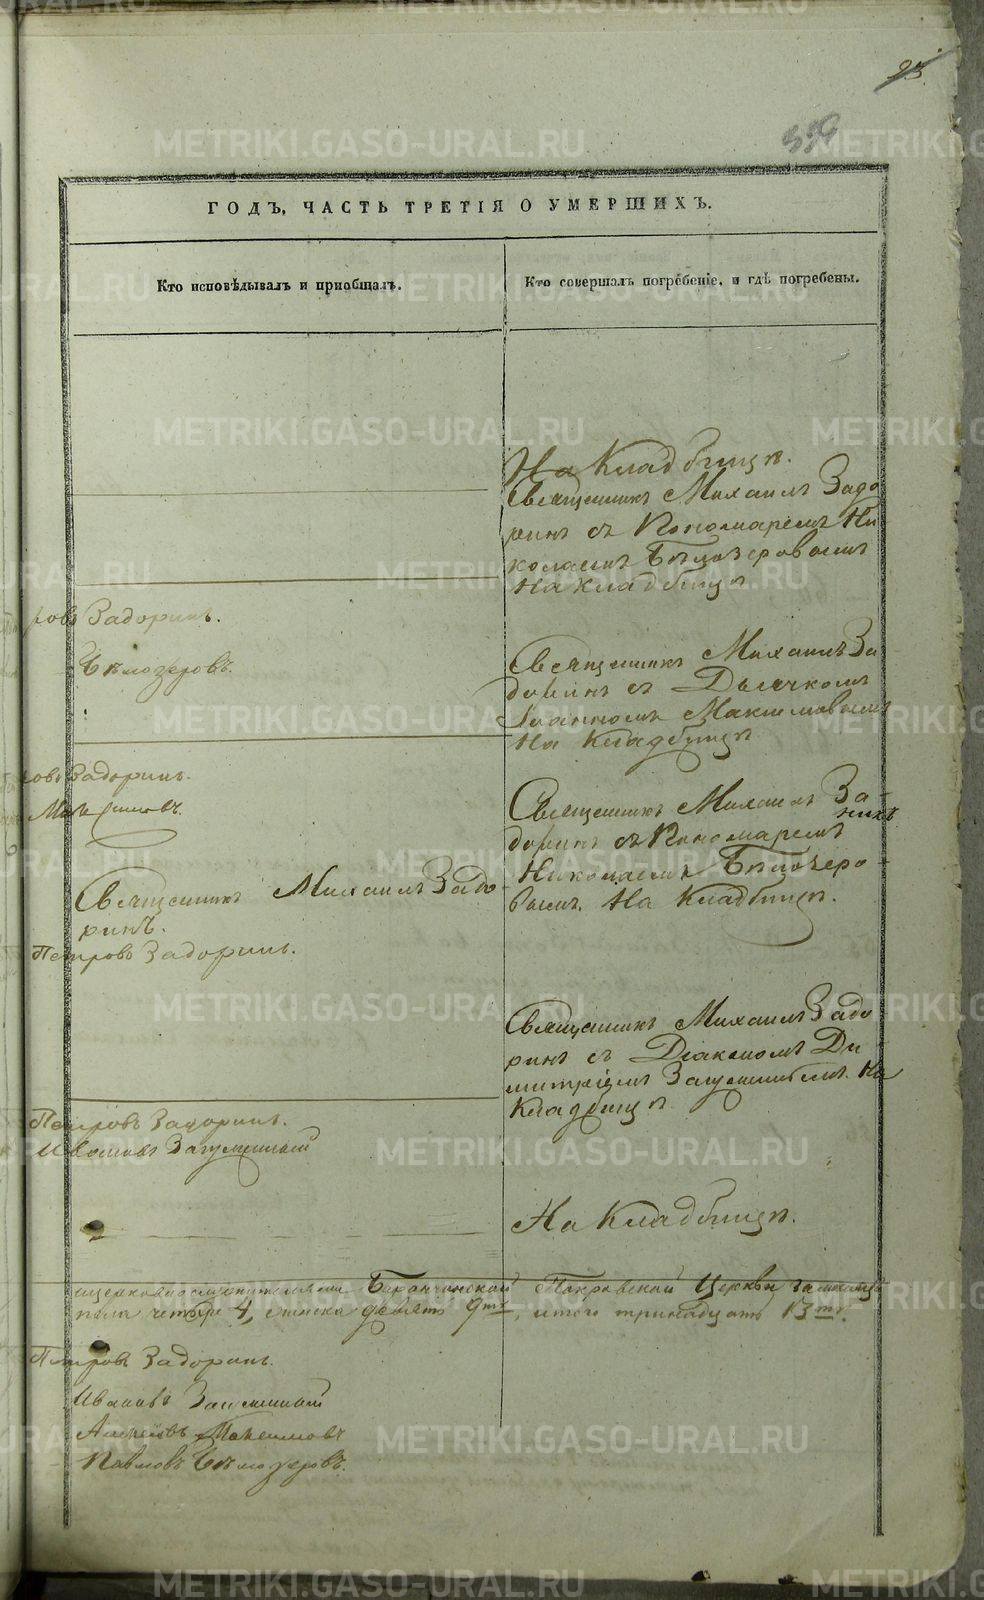 23.
339
ГОДЪ, ЧАСТЬ ТРЕТІЯ О УМЕРШИХЪ.
Кто исповѣдывалъ и пріобщалъ.
Кто совершалъ погребеніе, и гдѣ погребены.
На Кладбищѣ.
Священникъ Михаилъ Задо
ринъ съ Пономаремъ Ни
колаемъ Бѣлозеровымъ
На Кладбищѣ
ровъ Задоринъ.
Бѣлозеровъ.
Священникъ Михаилъ За
доринъ съ Дьячкомъ
Іоанномъ Максимовымъ
На Кладбищѣ
овъ Задоринъ.
Максимовъ
Священникъ Михаилъ За-
доринъ съ Пономаремъ
Николаемъ Бѣлозеро-
вымъ. На Кладбищѣ.
Священникъ Михаилъ Задо
ринъ.
Петровъ Задоринъ.
Священникъ Михаилъ Задо
ринъ съ Діакономъ Ди
митріемъ На
Кладбищѣ
Петровъ Задоринъ.
Ивановъ
На Кладбищѣ.
Баранчинской Покровской Церкви
пола четыре 4, женска девять 9ть, итого тринадцать 13ть.
Петровъ Задоринъ.
Ивановъ
Алексѣевъ Максимовъ
Павловъ Бѣлозеровъ.
METRIKI.GASO-URAL.RU